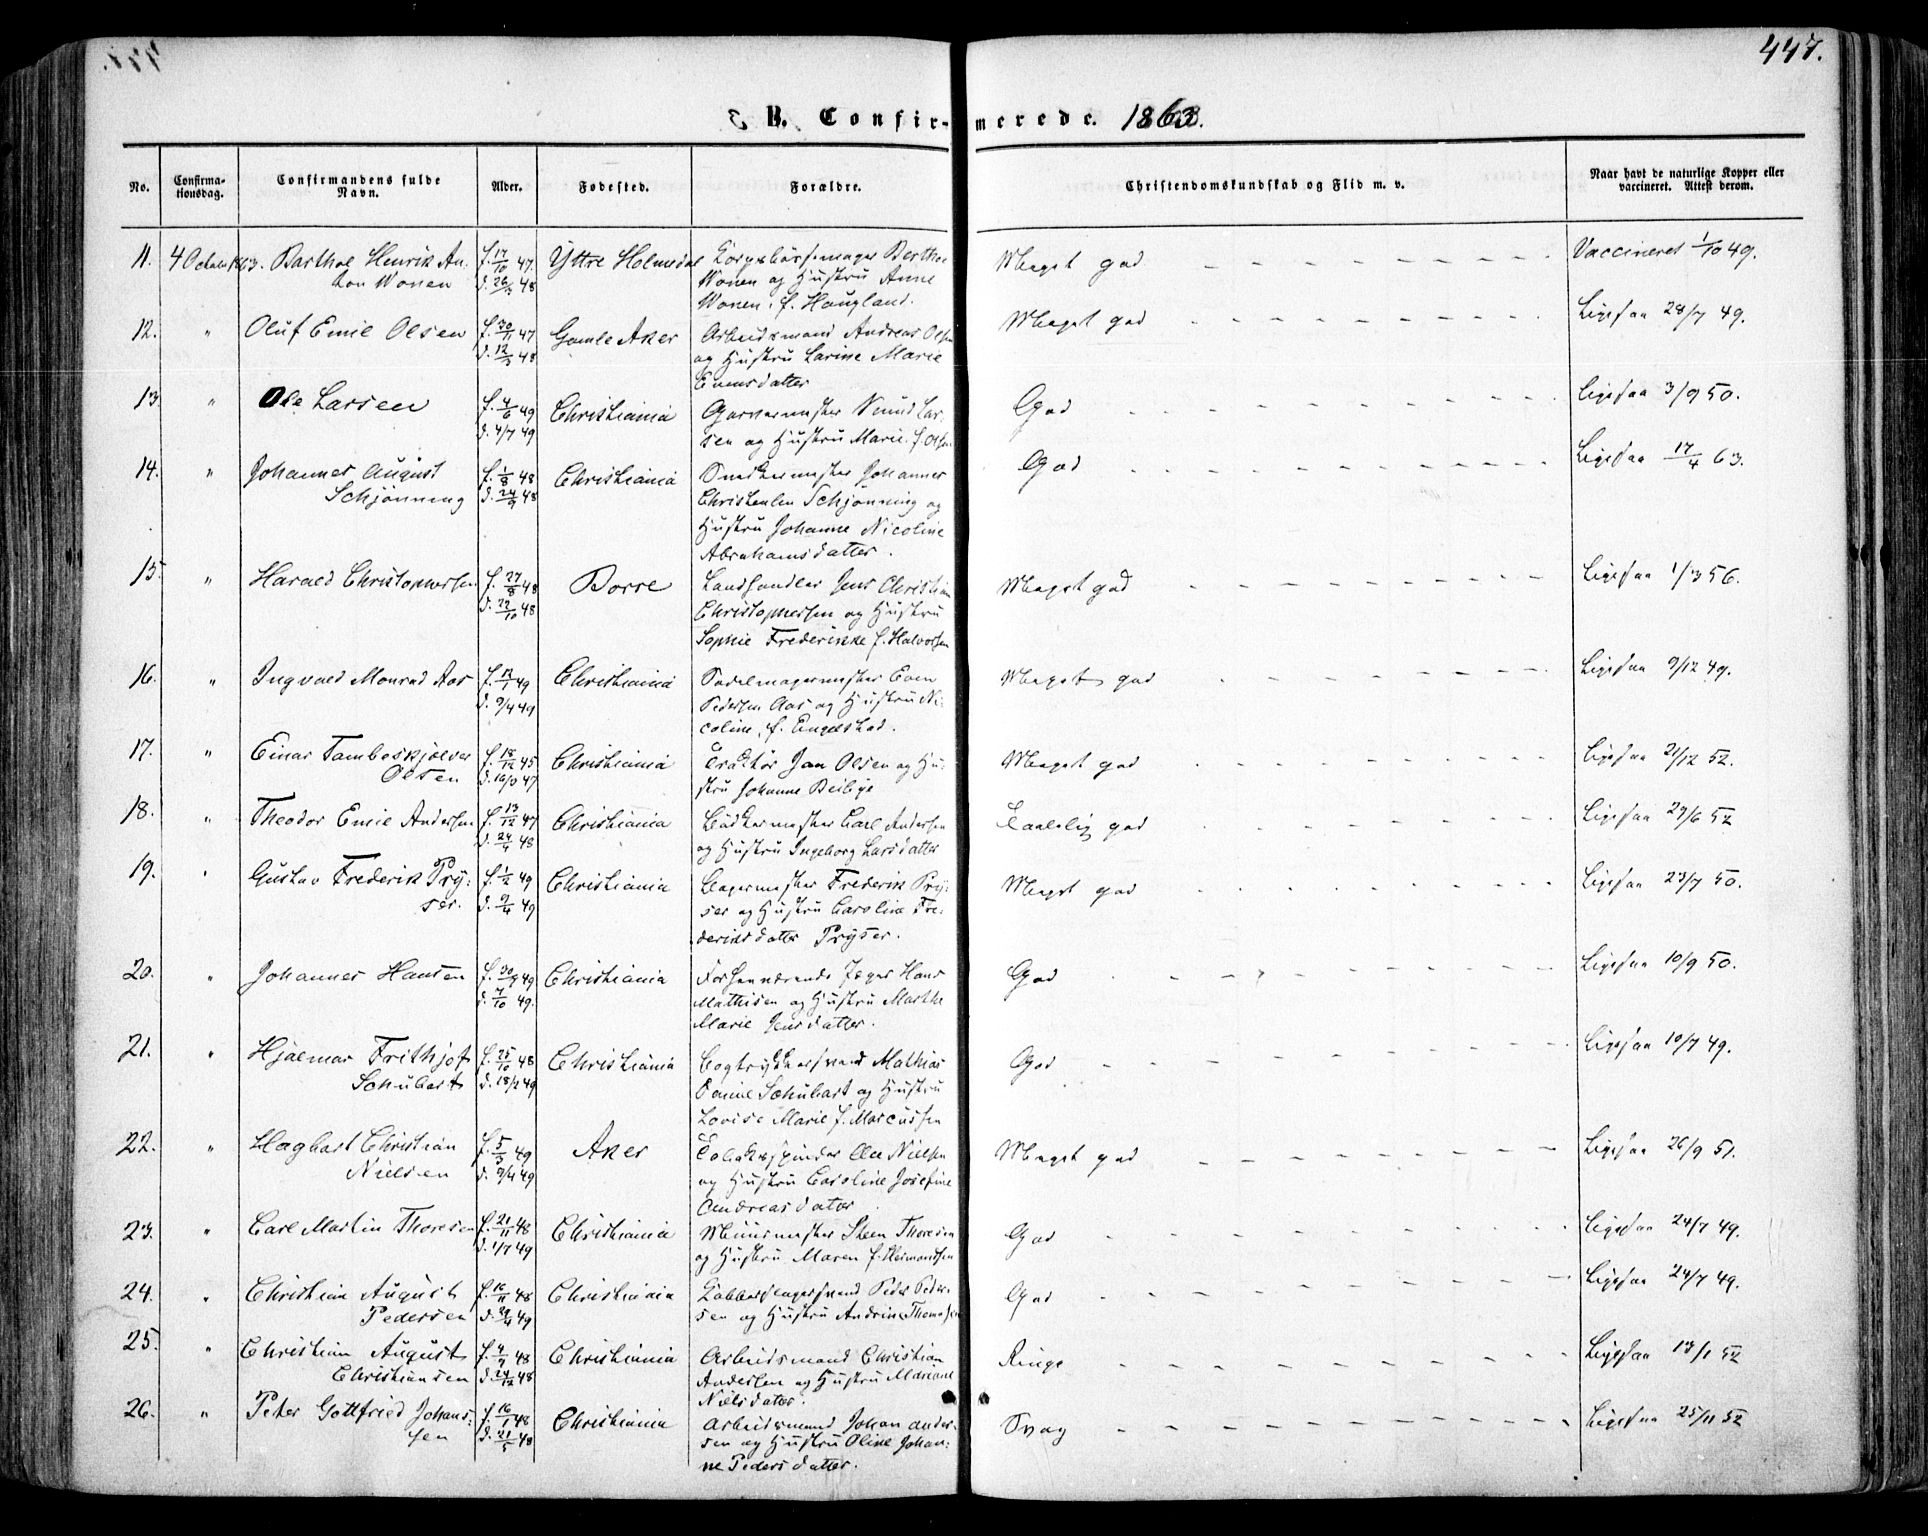 447.
B. Confir-merede. 1863.
No. Confirma-tionsdag. Confirmandens fulde Navn. Alder. Fødested. Forældre. Christendomskundskab og Flid m. v. Naar havt de naturlige Kopper eller vaccineret. Attest derom.
11. 4 October 1863. Barthol Henrik An- f. 17/10 47. Ytre Holmedal Berthel Meget god Vaccineret 1/10 49.
ton Wonen d. 26/3 48 Wonen og Hustru Anne
Wonen, f. Haugland.
12. " Oluf Emil Olsen f. 30/11 47 Gamle Aker Arbeidsmand Andreas Olsen Meget god Ligesaa 28/7 49.
d. 12/3 48 og Hustru Larine Marie
Evensdatter
13. " Ole Larsen f. 4/6 49 Christiania Garvermester Knud Lar- God Ligesaa 3/9 50.
d. 4/7 49 sen og Hustru Marie f. Olsen
14. " Johannes August f. 1/8 48 Christiania Snedkermester Johannes God Ligesaa 17/4 63.
Schjönning d. 24/9 48 Schjönning og
Hustru Johanne Nicoline
Abrahamsdatter.
15. " Harald Christophersen f. 27/8 48 Borre Landhandler Jens Christian Meget god Ligesaa 1/3 56.
d. 22/10 48 Christophersen og Hustru
Sophie Frederikke f. Halvorsen
16. " Ingvald Monrad Aas f. 12/1 49 Christiania Sadelmagermester Even Meget god Ligesaa 9/12 49.
d. 9/4 49 Pedersen Aas og Hustru Ni-
coline, f. Engelstad.
17. " Einar Tambeskjelver f. 18/12 45 Christiania Traktør Jan Olsen og Hu- Meget god Ligesaa 21/12 52.
Olsen stru Johanne
18. " Theodor Emil Andersen f. 13/12 47 Christiania Bødkermester Carl Andersen Taalelig god Ligesaa 29/6 52
d. 24/4 48 og Hustru Ingeborg Larsdatter
19. " Gustav Frederik Pry- f. 1/2 49 Christiania Bagermester Frederik Pry- Meget god Ligesaa 23/7 50.
ser. d. 9/4 49 ser og Hustru Caroline Fre-
deriksdatter Pryser.
20. " Johannes Hansen f. 30/9 49 Christiania Forhenværende Jæger Hans God Ligesaa 10/9 50.
d. 7/10 49. Mathisen og Hustru Marthe
Marie Jensdatter.
21. " Hjalmar Frithjof f. 25/10 48 Christiania Bogtrykkersvend Mathias God Ligesaa 10/7 49.
Schubart d. 18/2 49 Schubart og Hustru
Lovise Marie f. Marcussen
22. " Hagbart Christian f. 5/3 49 Aker Tobakspinder Ole Nielsen Meget god Ligesaa 26/9 51.
Nielsen d. 9/4 49 og Hustru Caroline Josefine
Andreasdatter
23. " Carl Martin Thoresen f. 21/11 48 Christiania Muurmester Steen Thoresen God Ligesaa 24/7 49.
d. 1/7 49 og Hustru Maren f.
24. " Christian August f. 16/11 48 Christiania Peder Peder- God Ligesaa 24/7 49.
Pedersen d. 29/4 49 sen og Hustru Andrine Thomasen
25. " Christian August f. 4/9 48 Christiania Arbeidsmand Christian Ringe Ligesaa 13/1 52
Christiansen d. 24/12 48 Andersen og Hustru Adriane
Nielsdatter.
26. " Peter Gottfried Johans- f. 16/1 48 Christiania Arbeidsmand Johan Ander- Svag Ligesaa 25/11 52
sen d. 21/5 48 sen og Hustru Oline Johan-
ne Pedersdatter.